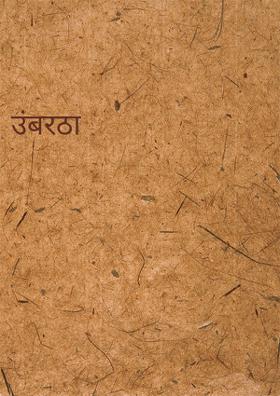 उंबरठा